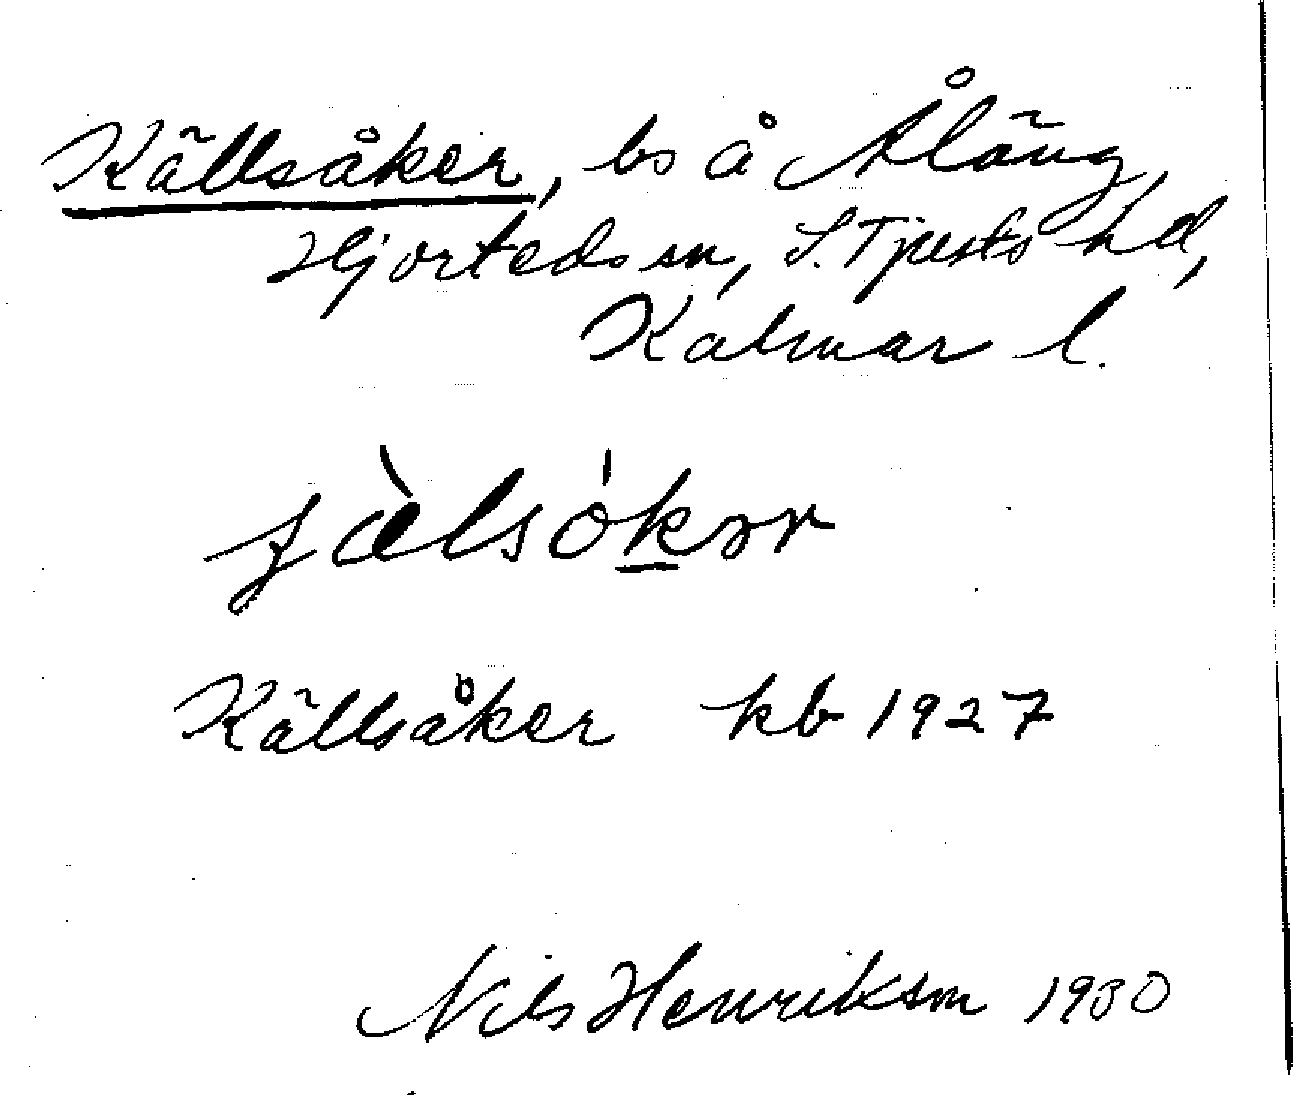 Källsåker, bs å Åläng,
Hjorteds sn, S. Tjusts hd,
Kalmar l.
Källsåker kb 1927
Nils Henrikson 1930